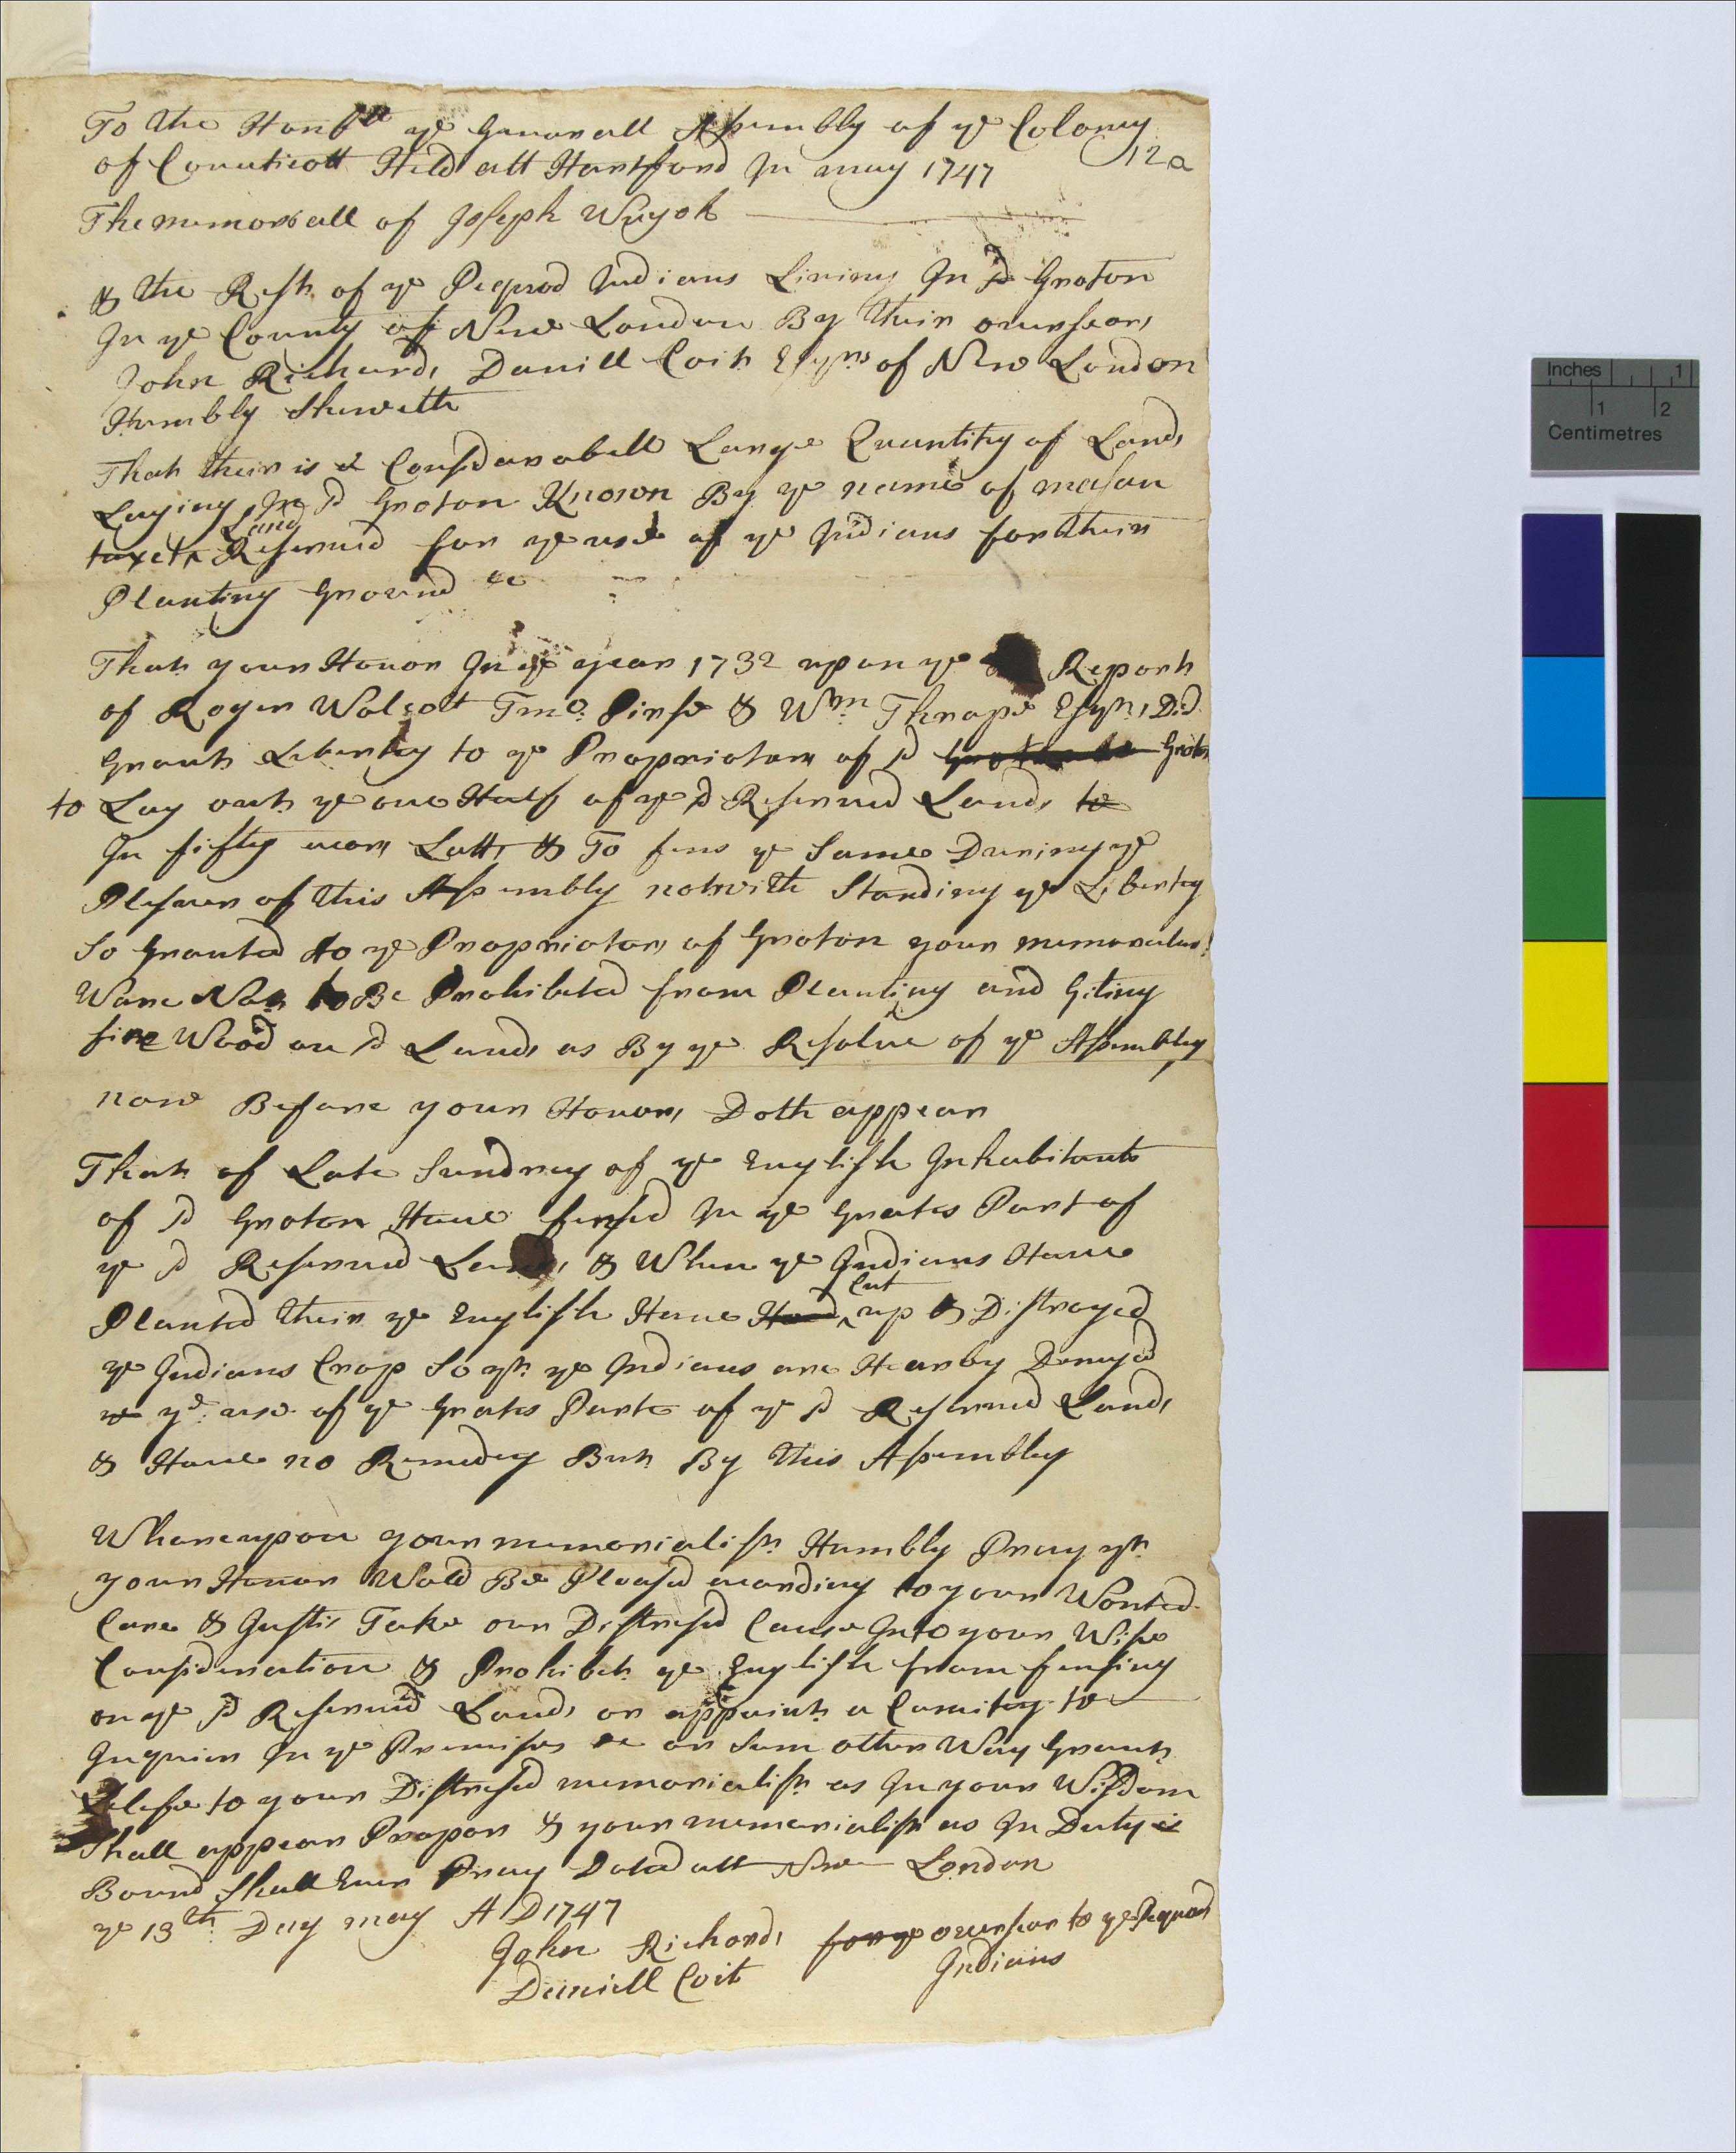 To the Honble ye Generall Assembly of ye Colony
of Conuticott Held att Hartford In may 1747
12a
The memoriall of Joseph Wuyok
& the Rest of ye Pequod Indians Living In sd Groton
In ye County of New London By their ouerseors
John Richards Daniell Coit Esqrs of New London
Humbly Sheweth
That their is a Considarabell Large Quantity of Lands
Laying In sd Groton Known By ye name of mason
taxett Land Reserued for ye use of ye Indians for their
Planting Ground &c
That your Honor In ye year 1732 upon ye Report
of Roger Wolcot Tmo. Pirse & Wm Thrope Esqrs Did
Grant Liberty to ye Proprietors of sd Groton
to Lay out ye one Half of ye sd Reserued Lands to
In fifty acors Lotts & To fens ye Same During ye
Plesuer of this Assembly notwith Standing ye Liberty
So Granted to ye Proprietors of Groton your memorialis
Ware Not to Be Prohibeted from Planting and Giting
fire Wood on sd Lands as By ye Resolue of ye Assembly
now Before your Honors Doth appear
That of Late Sundrey of ye English Inhabitants
of sd Groton Haue fensed In ye Grates Part of
ye sd Reserued Lands, & When ye Indians Haue
Planted their ye English Haue Cut up & Distroyed
ye Indians Crop So yt ye Indians are Hearby Denyed
ye use of ye Grates Parte of ye sd Reserued Lands
& Haue no Remedey But By this Assembley
Whareupon your memorialist Humbly Pray yt
your Honor Wold Be Pleased acording to your Wonted
Care & Justis Take our Distresed Cause Into your Wise
Considiration & Prohibet ye English from fensing
on ye sd Reserued Lands or appoint a Comitey to
Inquier In ye Premises or on Sum other Way Grant
Relese to your Distresed memorialist as In your Wisdom
Shall appear Propor & your memorialist as In Duty is
Bound Shall Euer Pray Dated att New London
ye 13th Day may A D 1747
John Richards for ye ouerseor to ye Pequod
Daniell Coit Indians
Inches 1
1 2
Centimetres